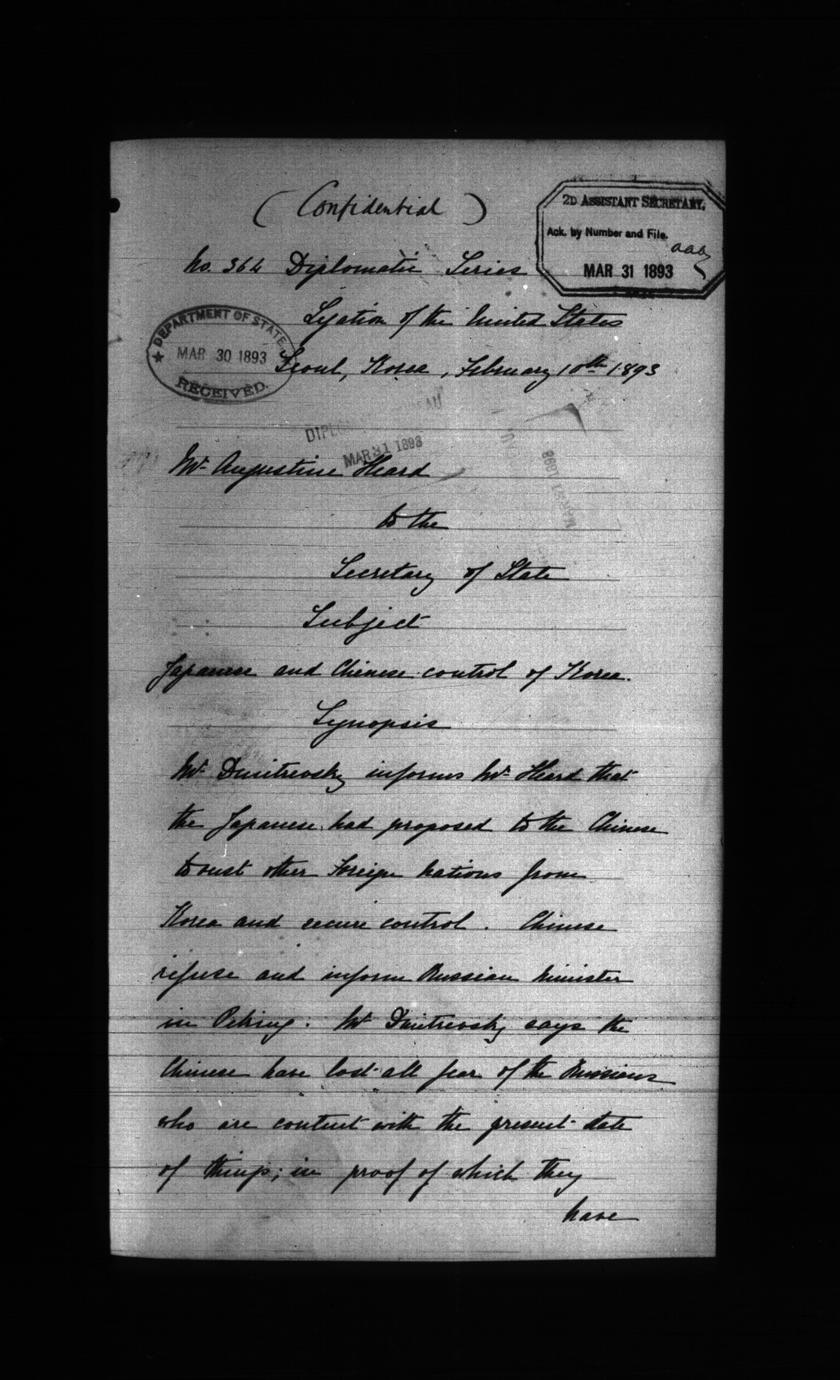 (Confidential)
2D ASSISTANT SECRETARY.
Ack. by Number and File.
MAR 31 1893
No. 364 Diplomatic Series
Legation of the United States
DEPARTMENT OF STATE
MAR 30 1893
RECEIVED.
Seoul, Korea, February 10th 1893
MAR 31 1893
Mr Augustine Heard
to the
Secretary of State
Subject
Japanese and Chinese control of Korea.
Synopsis
Mr Dmitrevsky informs Mr Heard that
the Japanese had proposed to the Chinese
to oust other Foreign Nations from
Korea and secure control. Chinese
refuse and inform Russian Minister
in Peking. Mr Dmitrevsky says the
Chinese have lost all fear of the Russians
who are content with the present state
of things; in proof of which they
have